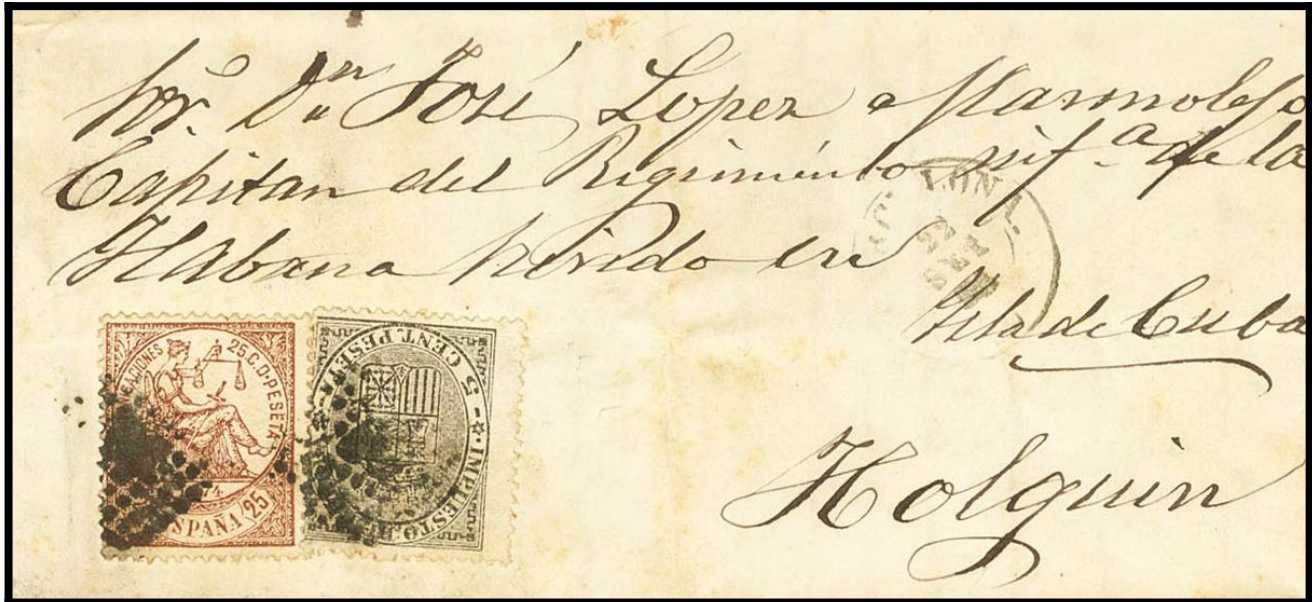 Sor. Dn José Lopez
Capitan del Regimiento Infa de la
Habana herido en
Isla de Cuba
Holguin
LONA
22
SET
COMUNICACIONES 25 C. D. PESETA
ESPAÑA 25
5 CENT. PESETA
IMPUESTO